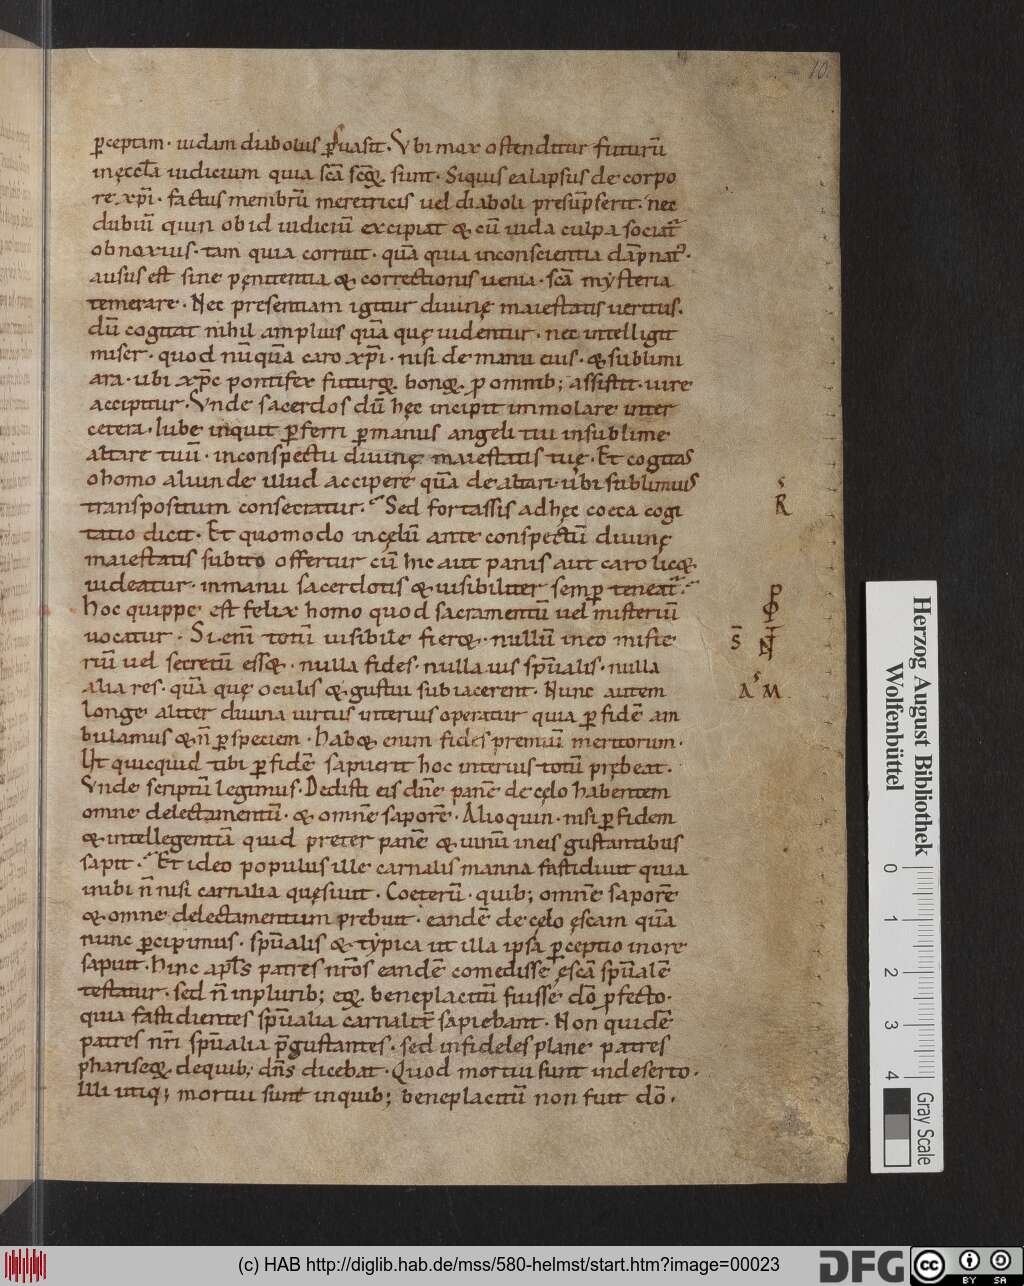 10.
ꝑceptam· iudam diabolus ꝑsuasit· Vbi mox ostenditur futurū
in ęccła iudicium quia scā scęꝗ sunt· Siquis ea lapsus de corpo
re xp̄i· factus membrū meretricis uel diaboli presūpserit· nec
dubiū quin ob id iudiciū excipiat & cū iuda culpa sociat᷑
obnoxius· tam quia corruit· quā quia inconscientia dāpnat᷑·
ausus est sine pęnitentia & correctionis uenia· scā mysteria
temerare· Nec presentiam igitur diuinę maiestatis ueritus·
dū cogitat nihil amplius quā quę uidentur· nec intelligit
miser· quod nūquā caro xp̄i· nisi de manu eius· & sublimi
ara· ubi xp̄c pontifex futuroꝝ bonoꝝ ꝓ omnib; assistit· iure
accipitur· Vnde sacerdos dū hęc incipit immolare inter
cetera· Iube inquit ꝑferri ꝑ manus angeli tui in sublime
altare tuū· in conspectu diuinę maiestatis tuę· Et cogitas
o homo aliunde illud accipere quā de altari· ubi sublimius
transpositum consecratur· Sed fortassis adhęc coeca cogi
tatio dicit· Et quomodo in cęlū ante conspectū diuinę
maiestatis subito offertur cū hic aut panis aut caro lic&
uideatur· in manu sacerdotis & uisibiliter semꝑ teneat᷑·
Hoc quippe est felix homo quod sacramentū uel misteriū
uocatur· Si enī totū uisibile fier&· nullū in eo miste
riū uel secretū ess&· nulla fides· nulla uis sp̄ualis· nulla
alia res· quā quę oculis & gustui subiacerent· Nunc autem
longe aliter diuina uirtus interius operatur quia ꝑ fidē am
bulamus & n̄ ꝑ speciem· Hab& enim fides premiū meritorum·
Ut quicquid tibi ꝑ fidē sapuerit hoc interius totū prębeat·
Vnde scriptū legimus· Dedisti eis dn̄e panē de cęlo habentem
omne delectamentū· & omnē saporē· Alioquin· nisi ꝑ fidem
& intellegentiā quid preter panē & uinū in eis gustantibus
sapit· Et ideo populus ille carnalis manna fastidiuit quia
inibi n̄ nisi carnalia quęsiuit· Coeterū· quib; omnē saporē
& omne delectamentum prebuit· eandē de cęlo ęscam quā
nunc ꝑcipimus· sp̄ualis & typica ut illa ipsa ꝑceptio in ore
sapuit· Hinc apłs patres nr̄os eandē comedisse ęscā sp̄ualē
testatur· sed n̄ in plurib; eoꝝ beneplacitū fuisse dō ꝑfecto·
quia fastidientes sp̄ualia carnalit̄ sapiebant· Non quidē
patres nr̄i sp̄ualia p̄gustantes· sed infideles plane patres
phariseoꝝ de quib; dn̄s dicebat· Quod mortui sunt in deserto·
Illi utiq; mortui sunt in quib; beneplacitū non fuit dō·
s
R
S̄
A s M
Herzog August Bibliothek
Wolfenbüttel
0 1 2 3 4
Gray Scale
(c) HAB http://diglib.hab.de/mss/580-helmst/start.htm?image=00023
DFG
cc BY SA